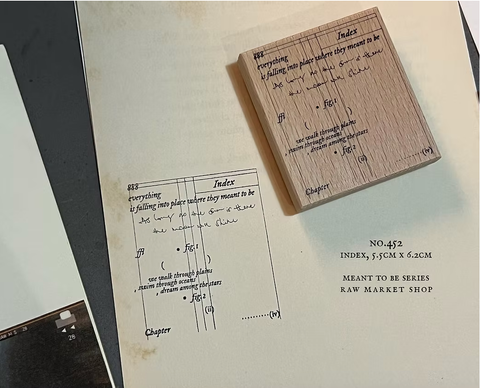 888
Index
everything
is falling into place where they meant to be
As long as the sun is there
the moon will shine
• fig. 1
ffi
( )
we walk through plains
, swim through oceans
, dream among the stars
• fig. 2
(ii)
..........(iv)
Chapter
888
Index
everything
is falling into place where they meant to be
As long as the sun is there
the moon will shine
• fig. 1
ffi
( )
we walk through plains
, swim through oceans
, dream among the stars
• fig. 2
(ii)
..........(iv)
Chapter
NO.452
INDEX, 5.5CM X 6.2CM
MEANT TO BE SERIES
RAW MARKET SHOP